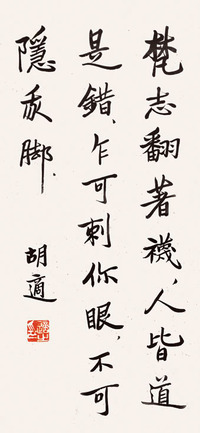 梵志翻著襪，人皆道
是錯，乍可刺你眼，不可
隱我脚．
胡適